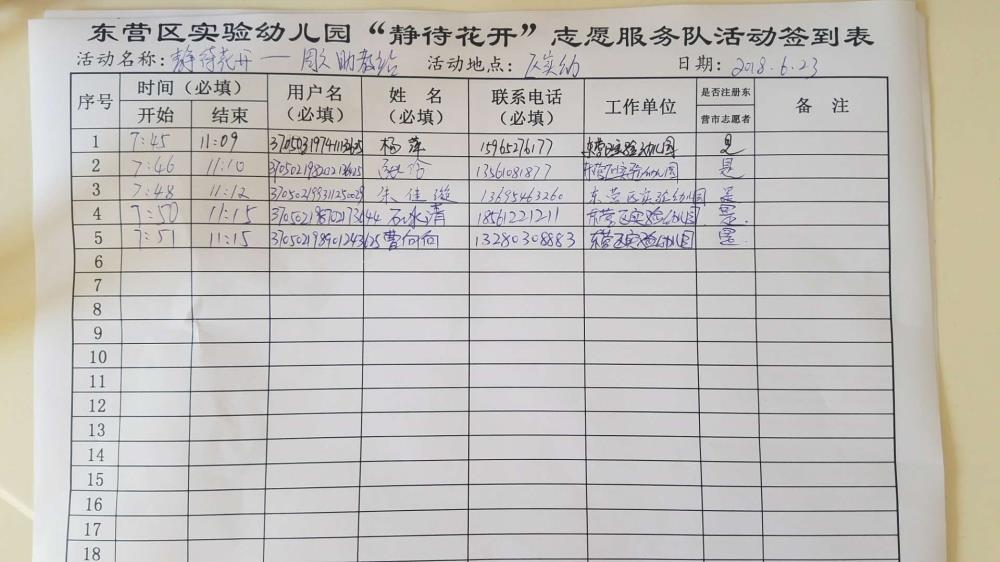 东营区实验幼儿园“静待花开”志愿服务队活动签到表
活动名称：静待花开——周六助教站 活动地点：区实幼 日期：2018.6.23
序号 时间（必填） 开始 结束 用户名（必填） 姓 名（必填） 联系电话（必填） 工作单位 是否注册东营市志愿者 备 注
1 7:45 11:09 杨萍 15965276177 东营区实验幼儿园 是
2 7:46 11:10 13561081877 东营区实验幼儿园 是
3 7:48 11:12 朱佳璇 13695463260 东营区实验幼儿园 是
4 7:50 11:15 石水清 18561221211 东营区实验幼儿园 是
5 7:51 11:15 曹向向 13280308883 东营区实验幼儿园 是
6
7
8
9
10
11
12
13
14
15
16
17
18